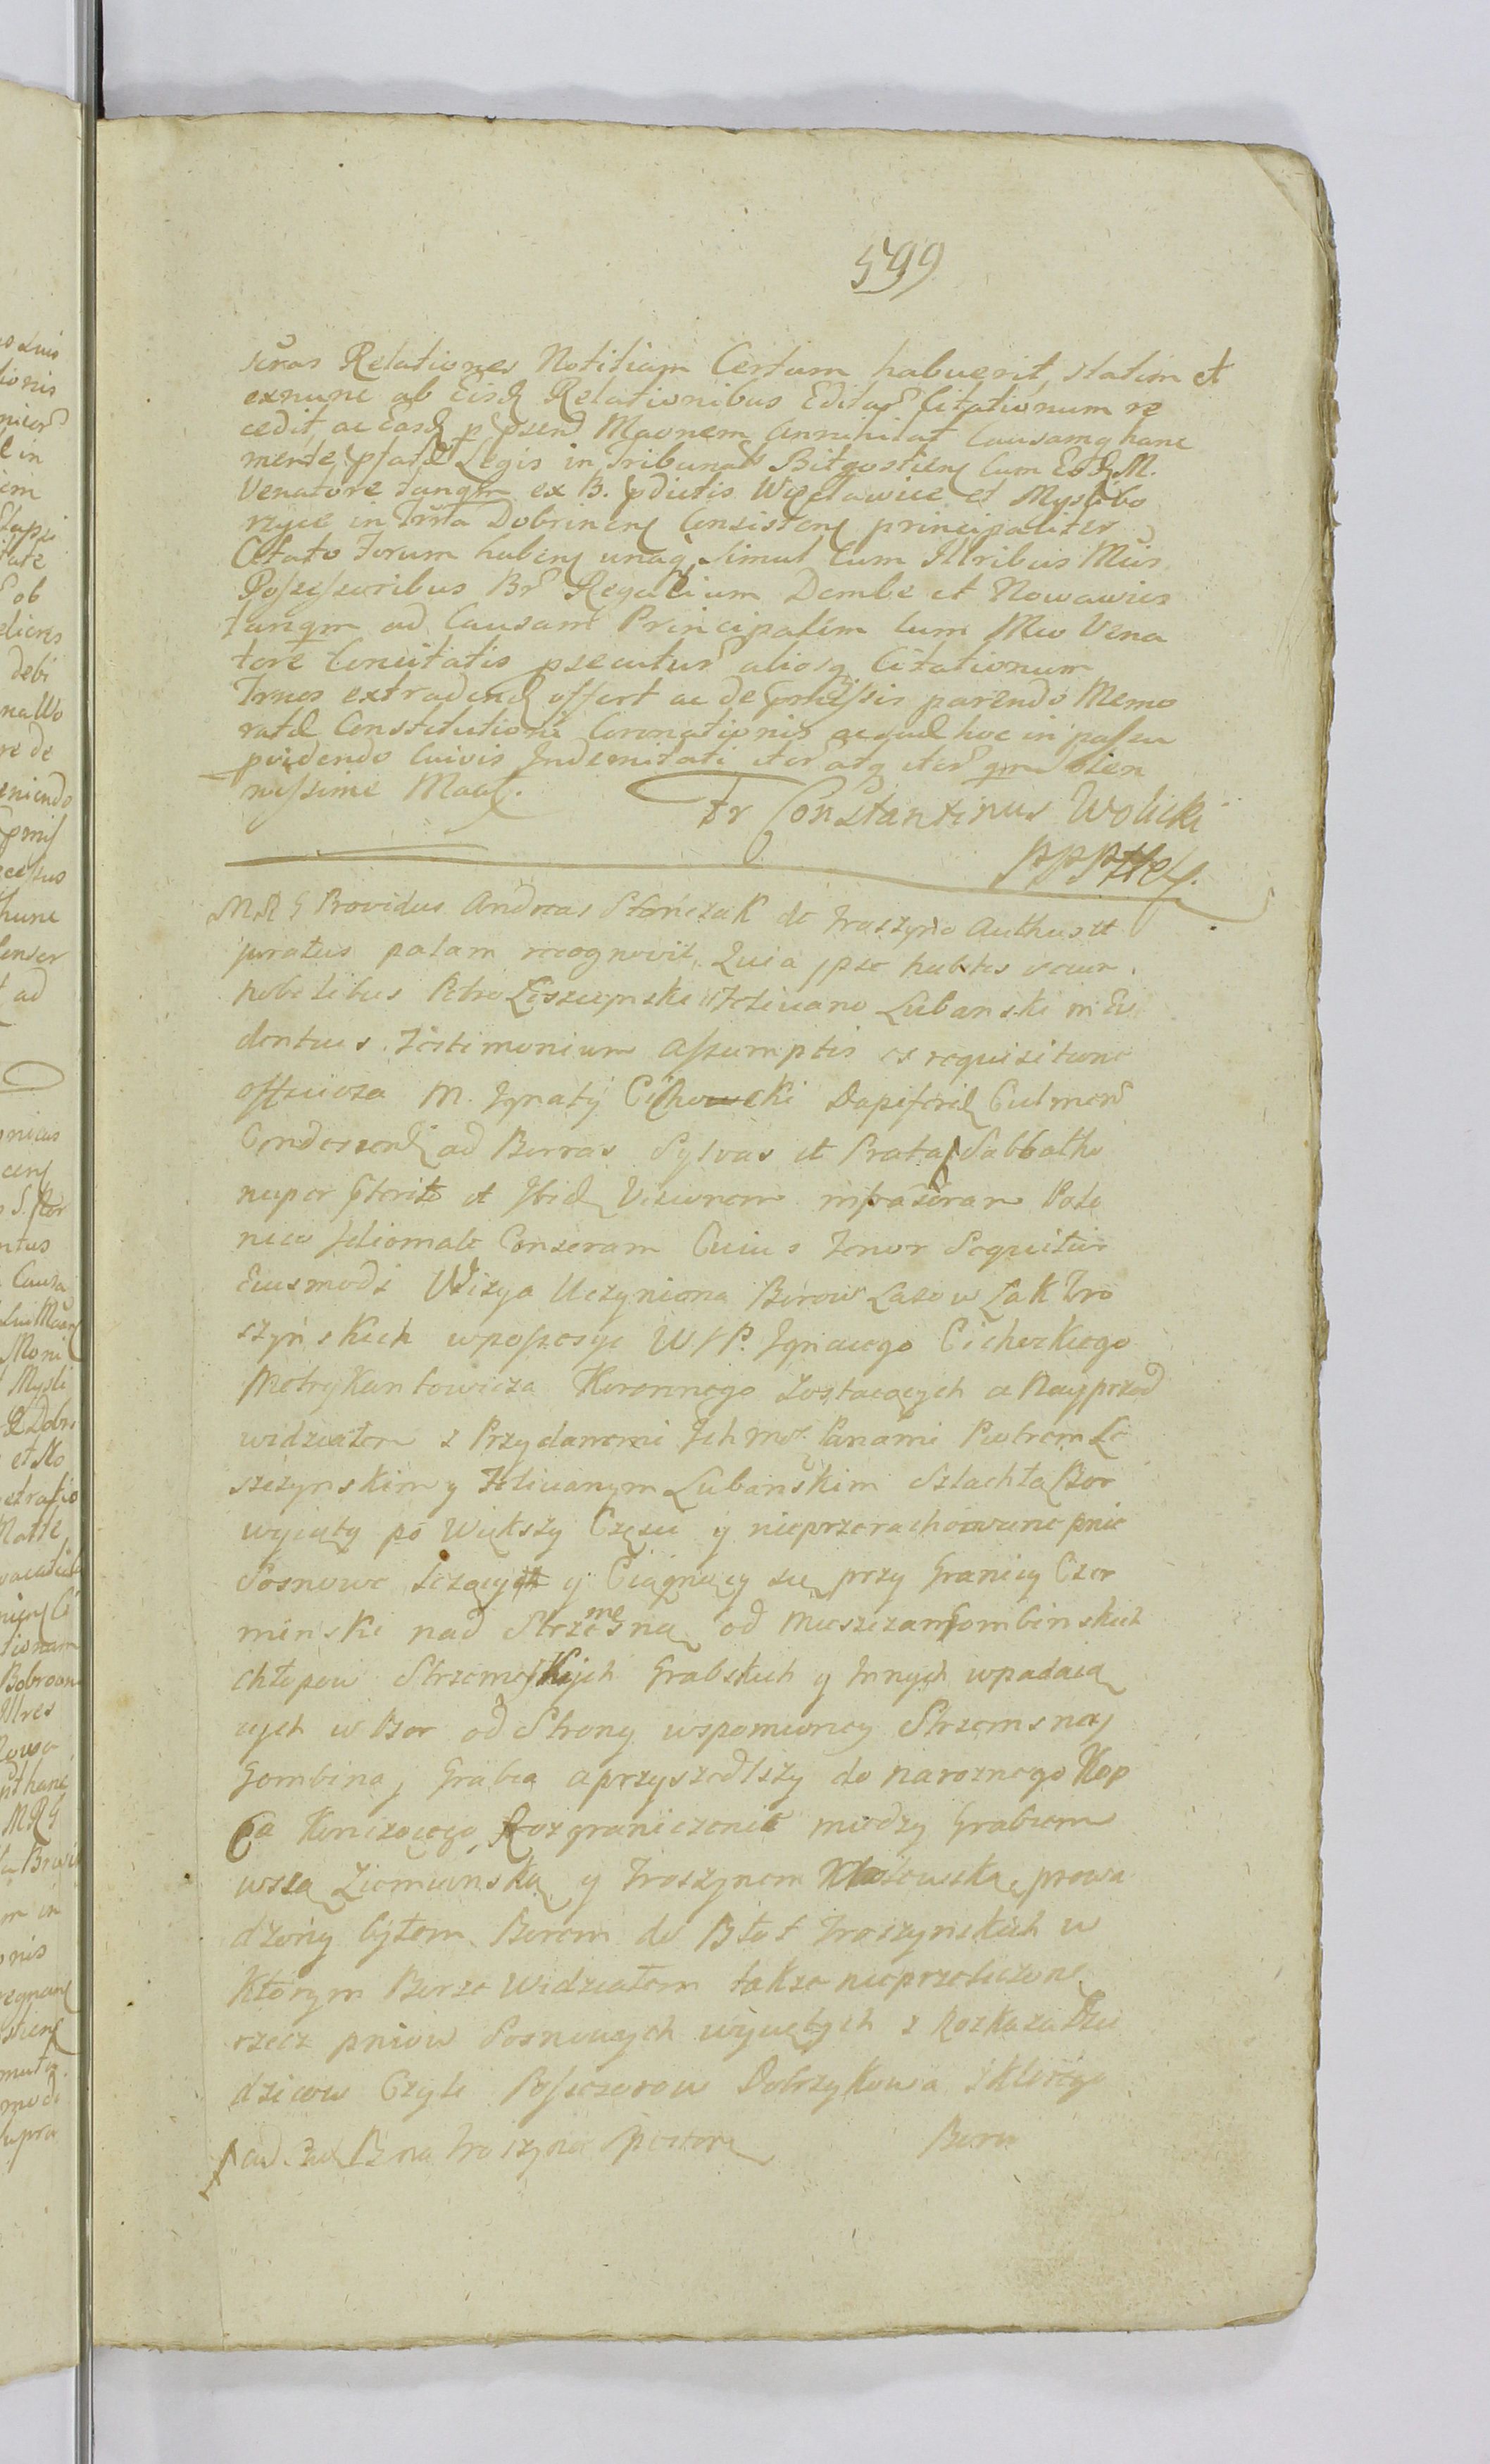 599
scras Relationes Notitiam Certam habuerit, statim et
exnunc ab Eisd Relationibus Editar Citationum re
cedit, ac Easd p psend Maonem Annihilat Causamq hanc
mente pfatæ Legis in Tribunali Bitgostien Cum Eod M.
Venatore tanqm ex B. pdictis Węcławice et Myslibo
rzyce in Trrta Dobrinen Consisten principaliter
Citato Forum haben unaq simul Cum Illribus Mcis
Possessoribus Br Regalium Dembe et Nowawies
tanqm ad Causam Principalem Cum Mco Vena
tore Concitatis psecutur aliosq Citationum
Trmos extradend offert ac de pmissis parendo Memo
ratæ Constitutioni Coronationis aequæ hoc in passu
pvidendo Cuivis Indemnitati iter atq iter qm solen
nissime Maat.
Fr Constantinus Wolicki
MRG Providus Andreas Stańczak de Troszyno Authus et
juratus palam recognovit, Quia ipse habitis secum
nobilibus Petro Leszczynski et Feliciano Lubanski in Evi
dentius Testimonium assumptis ex requisitione
officiosa M. Ignatij Cichocki Dapiferid Culmen
Condescend ad Borras Sylvas et Prata Sabbatho
nuper pterito et Ibid Visionem infrascram Polo
nico Idiomate Conseram Cuius Tenor Sequitur
Eiusmodi Wizya Uczyniona Borow Lasow Łak Tro
szyńskich wpossesyi WJP. Ignacego Cichockiego
Metrykantowicza Koronnego zostaiących a Nayprzod
widziałem z Przydanemi Ichmc Panami Piotrem Le
szczynskim y Felicianym Lubańskim Szlachta Bor
wycięty po Większy Częsci y nieprzerachowane pnie
Sosnowe lezących y Ciągnący się przy Granicy Czer
minski nad Strzemesną od Mieszczan Gombinskich
chłopow Strzemeskich Grabskich y Innych wpadaią
cych w Bor od Strony wspomnioney Strzemsney
Gombina, Grabia a przyszedłszy do naroznego Kop
Ca Konczącego Rozgraniczenie miedzy Grabiem
wsią Ziemianską y Troszynem prowa
dzony byłem Borem do Błot Troszynskich w
Ktorym Borze widziałem takze nieprzeliczone
rzecz pniow Sosnowych wyciętych z Rozkazu Dzie
dzicow Czyli Possesorow Dobrzykowa z Ktorego
ad B na Troszyno Boru